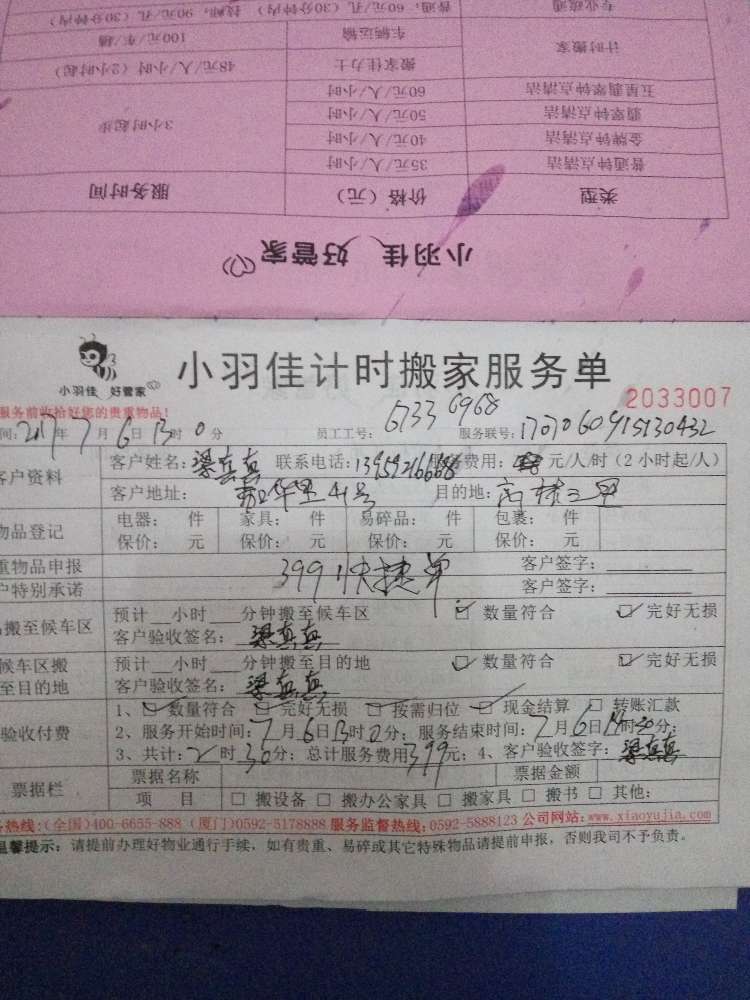 专业疏通 普通：60元/孔（30分钟内） 技师：90元/孔（30分钟内）
计时搬家 车辆运输 100元/车/趟
搬家佳力士 48元/人/小时（2小时起）
五星翡翠钟点清洁 60元/人/小时 3小时起步
翡翠钟点清洁 50元/人/小时
金牌钟点清洁 40元/人/小时
普通钟点清洁 35元/人/小时
类型 价格（元） 服务时间
小羽佳 好管家
小羽佳 好管家
小羽佳计时搬家服务单
2033007
服务前收拾好您的贵重物品！
间：2017年7月6日13时0分 员工工号：6733 6968 服务联号：
客户资料 客户姓名：梁真真 联系电话： 服务费用： 元/人/时（2小时起/人）
客户地址： 41号 目的地：
物品登记 电器： 件 家具： 件 易碎品： 件 包裹： 件
保价： 元 保价： 元 保价： 元 保价： 元
重物品申报 客户签字：
户特别承诺 399快捷单 客户签字：
搬至候车区 预计__小时__分钟搬至候车区 ☑ 数量符合 ☑ 完好无损
客户验收签名：梁真真
候车区搬至目的地 预计__小时__分钟搬至目的地 ☑ 数量符合 ☑ 完好无损
客户验收签名：梁真真
验收付费 1、☑ 数量符合 ☑ 完好无损 ☑ 按需归位 ☑ 现金结算 □ 转账汇款
2、服务开始时间：7月6日13时0分；服务结束时间：7月6日15时30分；
3、共计：2时30分；总计服务费用399元；4、客户验收签字：梁真真
票据栏 票据名称 票据金额
项 目 □ 搬设备 □ 搬办公家具 □ 搬家具 □ 搬书 □ 其他：
务热线：(全国)400-6655-888 (厦门)0592-5178888 服务监督热线：0592-5888123 公司网站：www.xiaoyujia.com
温馨提示：请提前办理好物业通行手续，如有贵重、易碎或其它特殊物品请提前申报，否则我司不予负责。